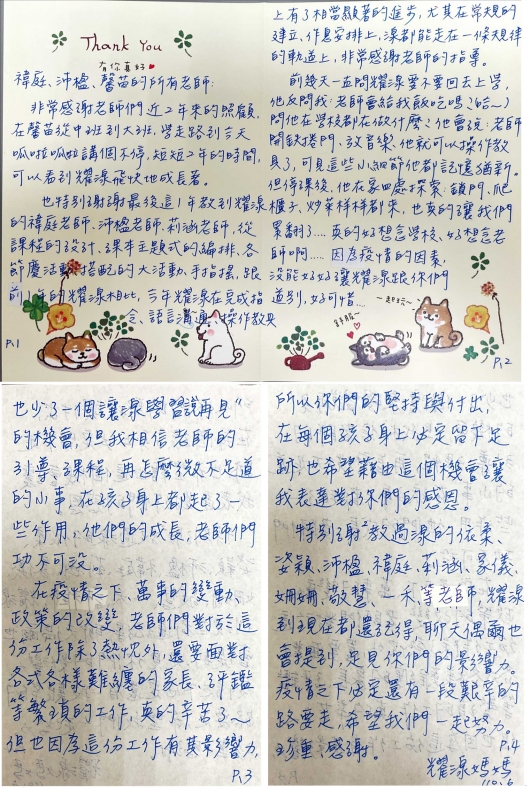 Thank You
有你真好
禕庭、沛楹、馨茵的所有老師:
非常感謝老師們近2年來的照顧,
在馨茵從中班到大班,學走路到今天
呱啦呱啦講個不停,短短2年的時間,
可以看到耀淥飛快地成長著。
也特別謝謝最後這1年教到耀淥
的禕庭老師、沛楹老師、莉涵老師,從
課程的設計、課本主題式的編排、各
節慶活動搭配的大活動、手指搖,跟
前1年的耀淥相比,今年耀淥在完成指
令、語言溝通、操作教具
P.1
上有了相當顯著的進步,尤其在常規的
建立、作息安排上,淥都能走在一條規律
的軌道上,非常感謝老師的指導。
前幾天一直問耀淥要不要回去上學,
他反問我:老師會給我飯吃嗎?(哈~)
問他在學校都在做什麼?他會說:老師
開鐵捲門、放音樂、他就可以操作教
具了,可見這些小細節他都記憶猶新。
但停課後,他在家四處探索、鎖門、爬
櫃子、炒菜樣樣都來,也真的讓我們
累翻了…真的好想念學校、好想念老
師啊…。因為疫情的因素,
沒能好好讓耀淥跟你們
道別,好可惜…
一起玩~
舒服~
P.2
也少了一個讓淥學習"說再見"
的機會,但我相信老師的
引導、課程,再怎麼微不足道
的小事,在孩子身上都起了一
些作用,他們的成長,老師們
功不可沒。
在疫情之下、萬事的變動、
政策的改變,老師們對於這
份工作除了熱忱外,還要面對
各式各樣難纏的家長、評鑑
等繁瑣的工作,真的辛苦了~
但也因為這份工作有其影響力,
P.3
所以你們的堅持與付出,
在每個孩子身上必定留下足
跡,也希望藉由這個機會讓
我表達對你們的感恩。
特別謝謝教過淥的依柔、
姿穎、沛楹、禕庭、莉涵、家儀、
姍姍、敬慧、一禾等老師,耀淥
到現在都還記得,聊天偶爾也
會提到,足見你們的影響力。
疫情之下必定還有一段艱辛的
路要走,希望我們一起努力。
珍重、感謝。
P.4
耀淥媽媽
110.6